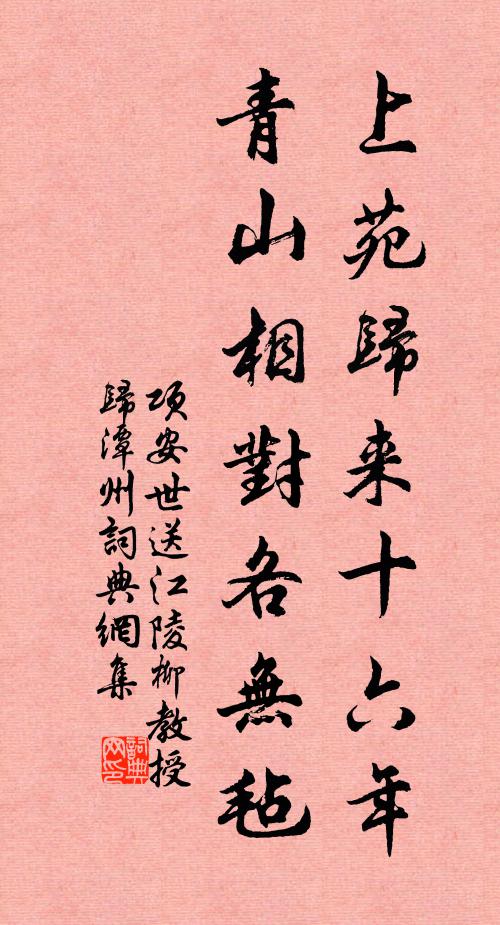 上苑歸来十六年
青山相對各無毡
項安世送江陵柳教授
歸潭州詞典網集
詞典网印